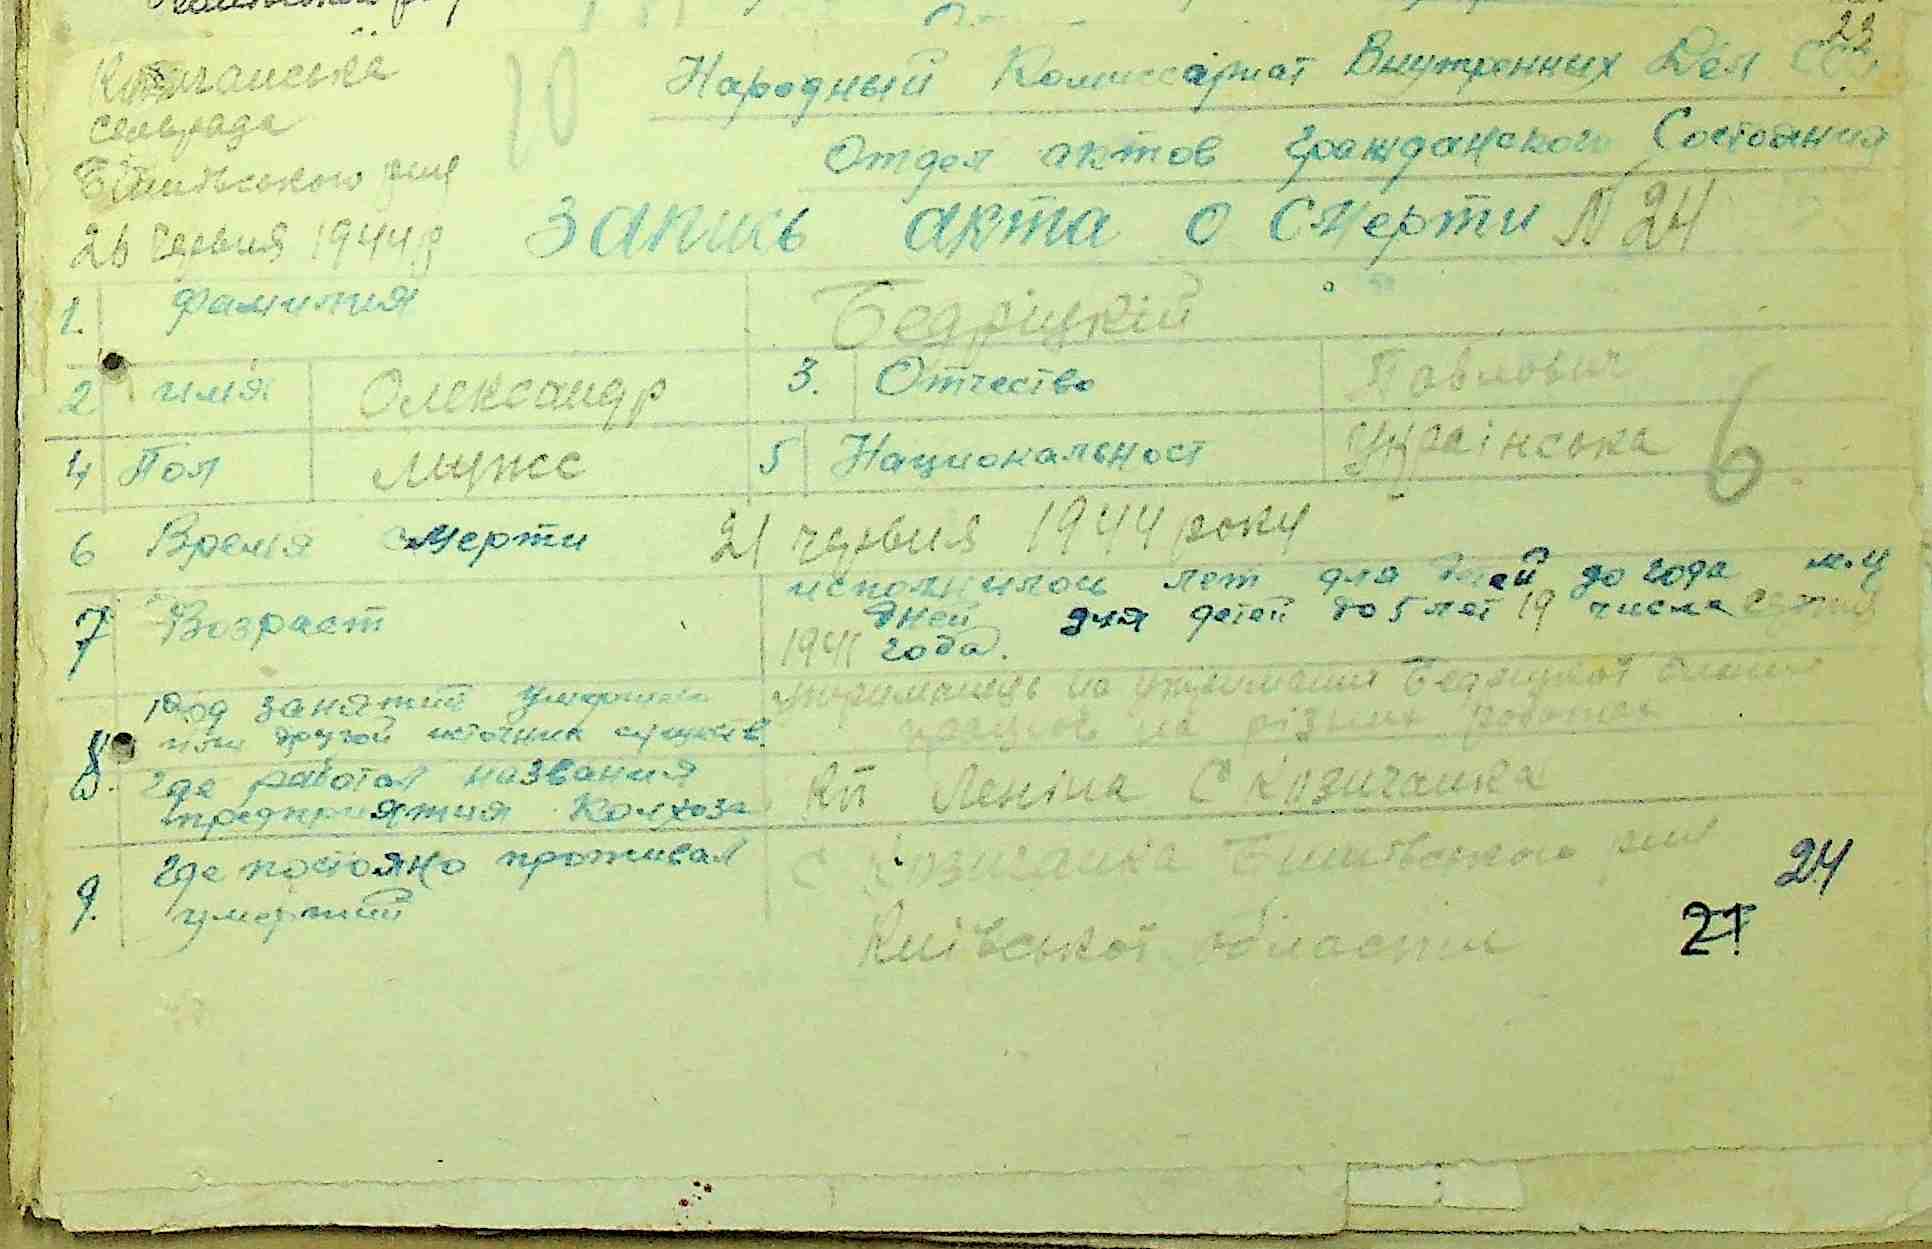 23
Козичанська
сельрада
10
Народный Комиссариат Внутренних Дел ССС
Бишівського р-ну
Отдел актов гражданского Состояния
26 червня 1944 р
Запись акта о смерти N 24
1. Фамилия Бедріцкій
2 имя Олександр 3. Отчество Павлович
4 Пол мужс 5 Национальност Українська
6.
6 Время смерти 21 червня 1944 року
7 Возраст исполнилось лет для детей до года м-ц
дней для детей до 5 лет 19 числа
1941 года.
8 Род занятий умершего утриманець на утриманні Бедрицкої
или другой источник существ. працює на різних роботах
8. Где работал названия
предприятия Колхоза Кп Леніна С Козичанка
9. Где постояно проживал с Козичанка Бишівського р-ну
умерший Київської области
24
27